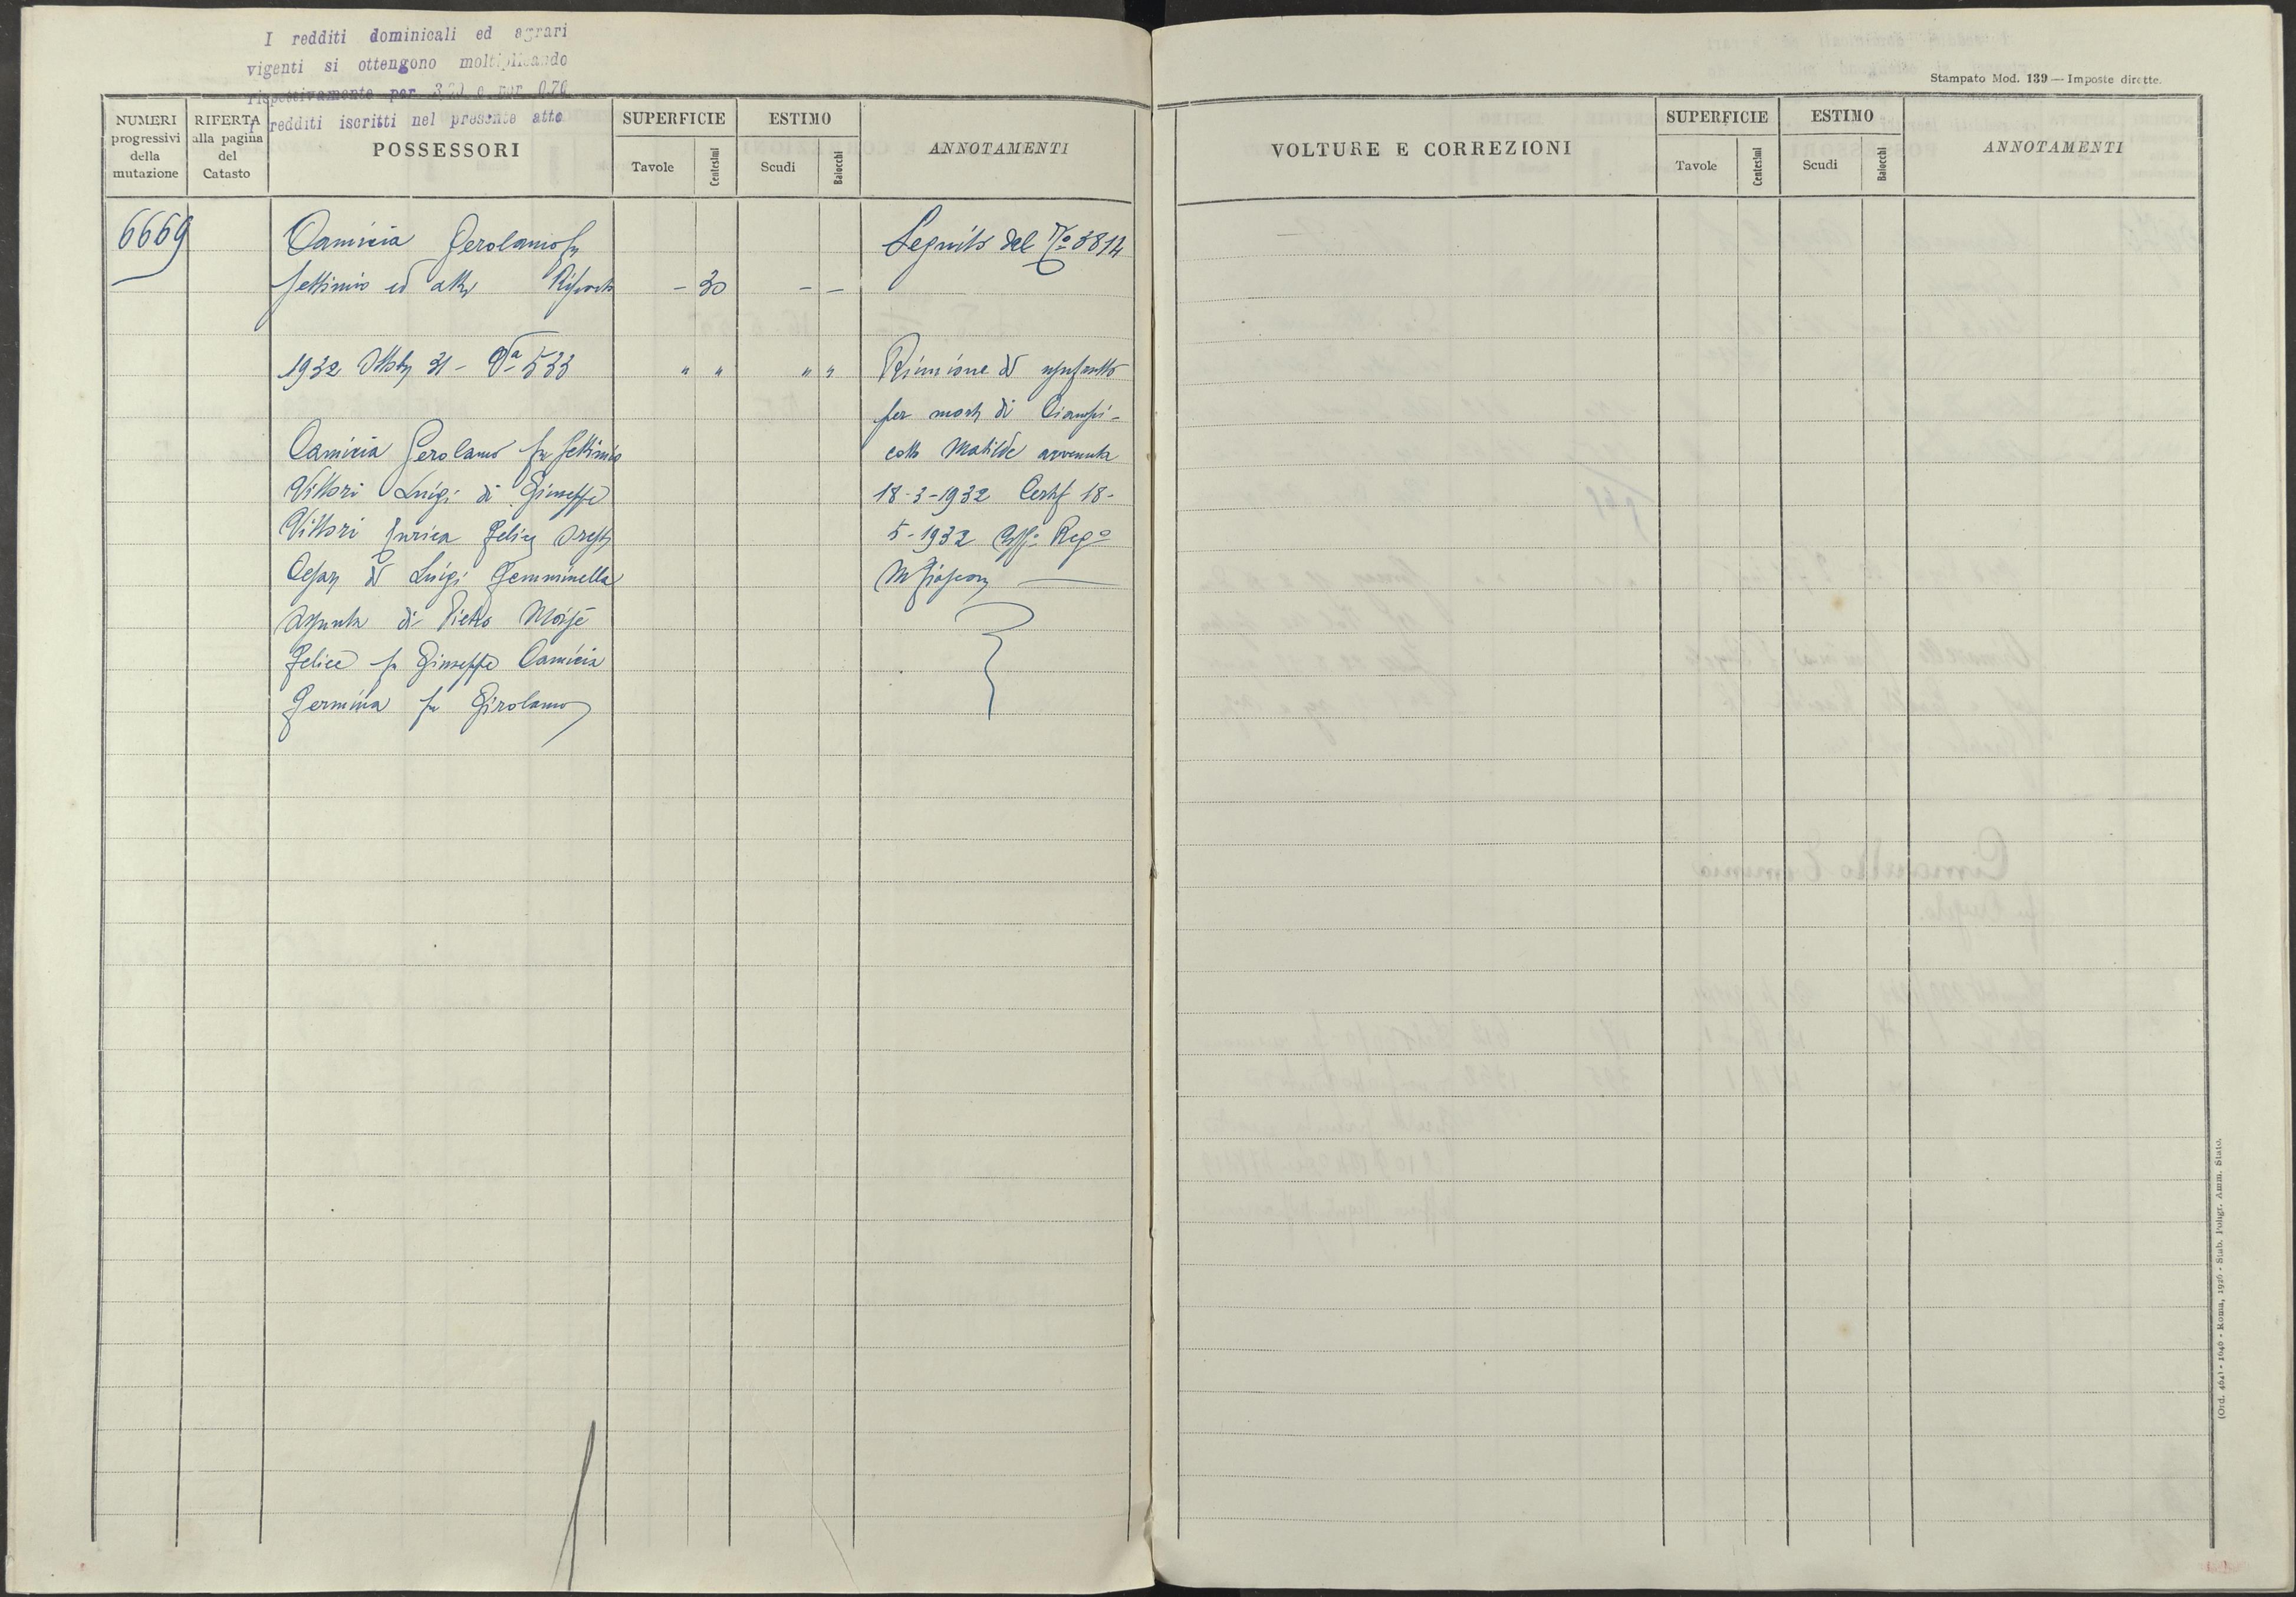 I redditi dominicali ed agrari
vigenti si ottengono moltiplicando
rispettivamente per 3,20 e per 0,70
I redditi iscritti nel presente atto
Stampato Mod. 139 — Imposte dirette.
NUMERI progressivi della mutazione
RIFERTA alla pagina del Catasto
POSSESSORI
SUPERFICIE
Tavole
Centesimi
ESTIMO
Scudi
Baiocchi
ANNOTAMENTI
VOLTURE E CORREZIONI
SUPERFICIE
Tavole
Centesimi
ESTIMO
Scudi
Baiocchi
ANNOTAMENTI
6669 Camicia Gerolamo fu Seguito del No 3814
Settimio ed altri Riporto - 30 - -
1932 Ottobre 31 - Va 533 " " " " Riunione di usufrutto
per morte di Ciampi-
Camicia Gerolamo fu Settimio cotti Matilde avvenuta
Vittori Luigi di Giuseppe 18-3-1932 Certif 18-
Vittori Enrica Felice Oreste 5-1932 Uffo Rego
Cesare di Luigi Femminella
Assunta di Pietro Moisè
Felice fu Giuseppe Camicia
Germina fu Girolamo
(Ord. 4641 - 1640 - Roma, 1926 - Stab. Poligr. Amm. Stato.